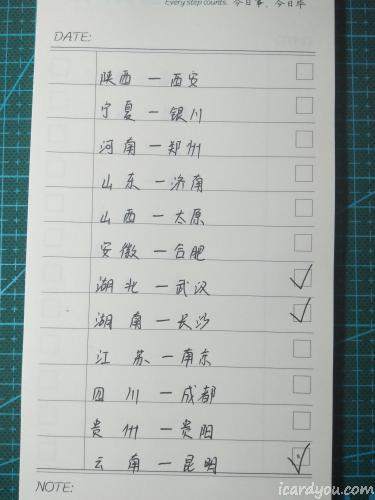 Every step counts. 今日事，今日毕
DATE:
陕西 — 西安
宁夏 — 银川
河南 — 郑州
山东 — 济南
山西 — 太原
安徽 — 合肥
湖北 — 武汉
湖南 — 长沙
江苏 — 南京
四川 — 成都
贵州 — 贵阳
云南 — 昆明
NOTE:
icardyou.com